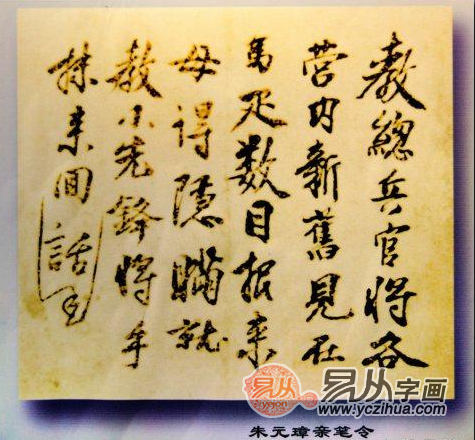 教總兵官將各
營内新舊見在
馬疋数目报来
毋得隱瞞就
教小先鋒將手
抹来囬話
易从字画
www.yczihua.com
朱元璋亲笔令